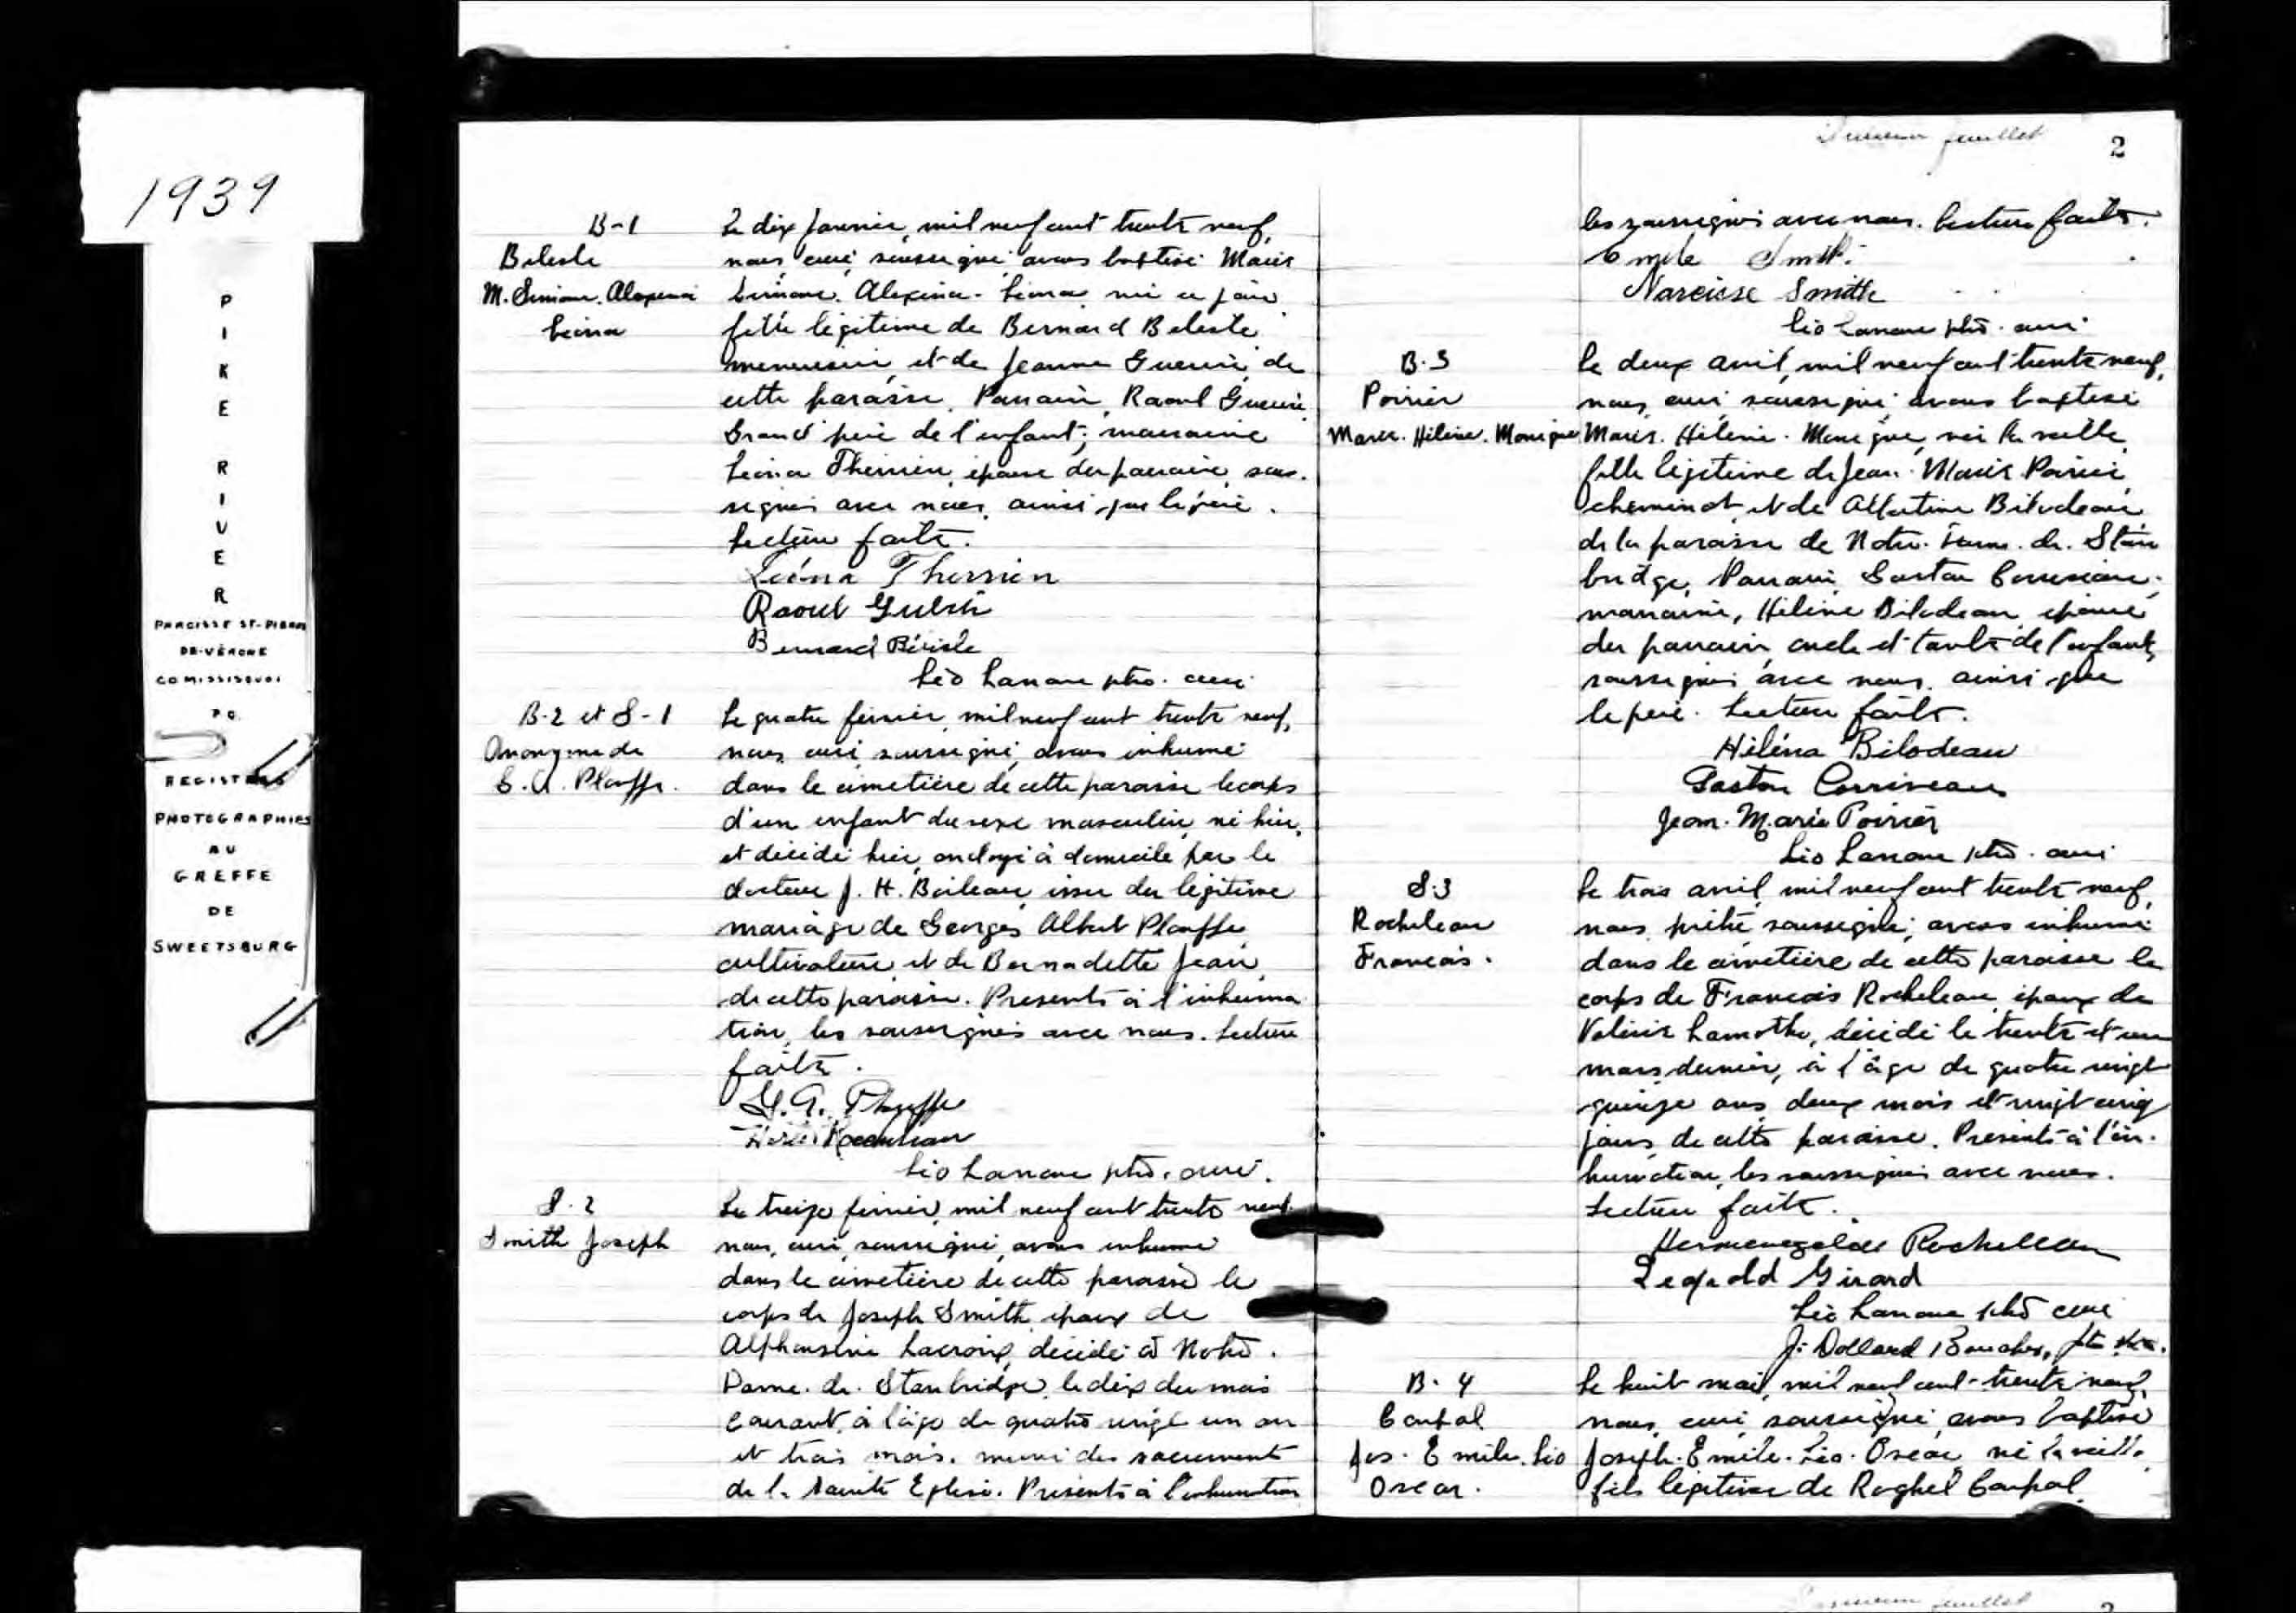 1939
PIKE RIVER
PAROISSE ST-PIERRE
DE-VÉRONE
CO MISSISQUOI
P.Q.
REGISTRES
PHOTOGRAPHIES
AU
GREFFE
DE
SWEETSBURG
B-1
Belisle
M. Simone. Alexina
Léona
Le dix janvier, mil neuf cent trente neuf,
nous, curé, soussigné avons baptisé Marie
Simone. Alexina. Léona née ce jour
fille légitime de Bernard Belisle
menuisier, et de Jeanne Guérin de
cette paroisse. Parrain, Raoul Guérin
Grand' père de l'enfant; marraine
Leona Therrien, épouse du parrain, sous-
signés avec nous, ainsi que le père.
Lecture faite.
Léona Therrien
Raoul
Bernard Bélisle
Léo Lanoue ptre. curé
B-2 et S-1
Anonyme de
G. A. Plouffe.
Le quatre février, mil neuf cent trente neuf,
nous, curé, soussigné, avons inhumé
dans le cimetière de cette paroisse le corps
d'un enfant du sexe masculin, né hier,
et décédé hier, ondoyé à domicile par le
docteur J. H. Boileau, issu du légitime
mariage de Georges Albert Plouffe
cultivateur, et de Bernadette Jean,
de cette paroisse. Présents à l'inhuma
tion, les soussignés avec nous. Lecture
faite.
G. A. Plouffe
Léo Lanoue ptre. curé.
S-2
Smith Joseph
Le treize février, mil neuf cent trente neuf
nous, curé, soussigné, avons inhumé
dans le cimetière de cette paroisse le
corps de Joseph Smith, époux de
Alphonsine Lacroix, décédé à Notre.
Dame. de. Stanbridge, le dix du mois
courant, à l'âge de quatre vingt un an
et trois mois. muni des sacrement
de la Sainte Eglise. Présents à l'inhumation
feuillet
2
les soussignés avec nous. Lecture faite.
Smith
Narcisse Smith
Léo Lanoue ptre. curé
B-3
Poirier
Marie. Hélène. Monique
Le deux avril, mil neuf cent trente neuf,
nous, curé, soussigné, avons baptisé
Marie. Hélène. Monique, née la veille,
fille légitime de Jean. Marie Poirier
cheminot, et de Albertine Bilodeau
de la paroisse de Notre. Dame. de. Stan
bridge. Parrain, Gaston Corriveau.
marraine, Hélène Bilodeau, épouse
du parrain, oncle et tante de l'enfant,
soussignés avec nous, ainsi que
le père. Lecture faite.
Héléna Bilodeau
Gaston Corriveau
Jean-Marie Poirier
Léo Lanoue ptre. curé
S-3
Rocheleau
Francois.
Le trois avril, mil neuf cent trente neuf,
nous, prêtre soussigné, avons inhumé
dans le cimetière de cette paroisse le
corps de Francois Rocheleau, époux de
Valérie Lamothe, décédé le trente et un
mars dernier, à l'âge de quatre vingt
quinze ans, deux mois et vingt cinq
jours, de cette paroisse. Présents à l'in-
humation, les soussignés avec nous.
Lecture faite.
Hermenegilde Rocheleau
Léopold Girard
Léo Lanoue ptre curé
J. Dollard Boucher, ptre
B-4
Campbel
Jos. Emile. Léo
Oscar.
Le huit mai, mil neuf cent trente neuf,
nous, curé, soussigné, avons baptisé
Joseph. Emile. Léo. Oscar, né la veille,
fils légitime de
feuillet